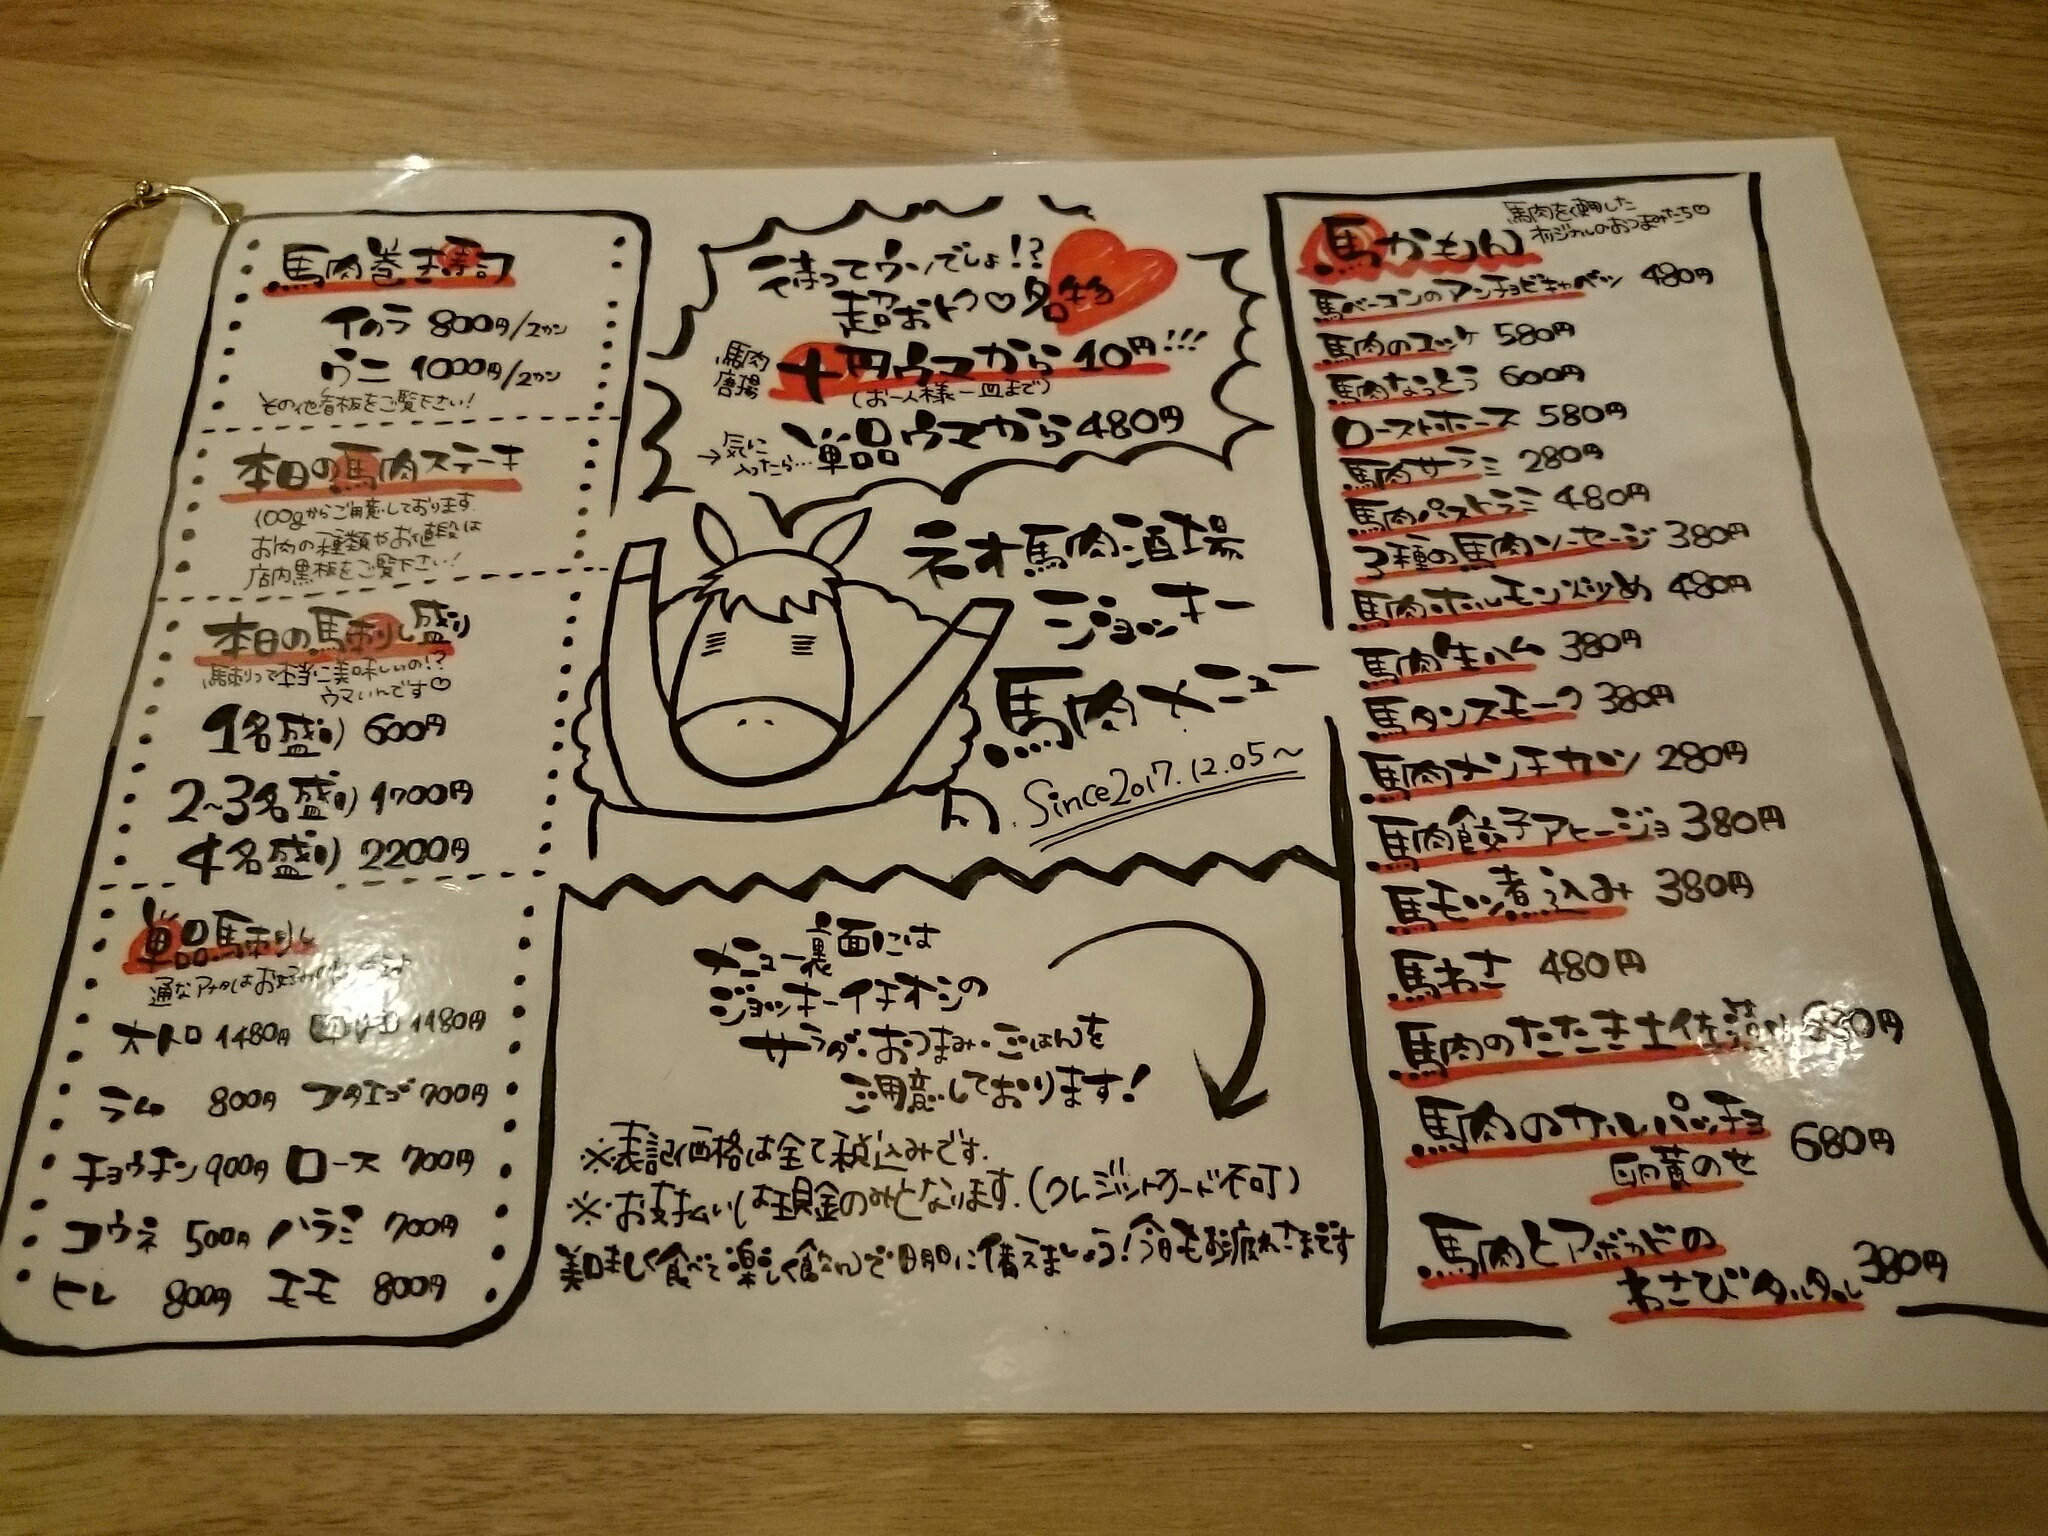 馬肉巻き寿司
イクラ 800円/2カン
ウニ 1000円/2カン
その他看板をご覧下さい!
本日の馬肉ステーキ
100gからご用意しております。
お肉の種類やお値段は
店内黒板をご覧下さい!
本日の馬刺し盛り
馬刺って本当に美味しいの!?
ウマいんです♡
1名盛り 600円
2~3名盛り 1700円
4名盛り 2200円
単品馬刺し
通なアナタはお好みの
大トロ 1480円 1180円
ラム 800円 フタエゴ 700円
チョウチン 900円 ロース 700円
コウネ 500円 ハラミ 700円
ヒレ 800円 モモ 800円
待ってウンでしょ!?
超おトク♡名物
馬肉唐揚 十円ウマから 10円!!!
(お一人様一皿まで)
→気に入ったら… 単品ウマから 480円
ネオ馬肉酒場
ジョッキー
馬肉メニュー
Since2017.12.05~
メニュー裏面には
ジョッキーイチオシの
サラダ・おつまみ・ごはんを
ご用意しております!
※表記価格は全て税込みです。
※お支払いは現金のみとなります。(クレジットカード不可)
美味しく食べて楽しく飲んで明日に備えましょう!今日もお疲れさまです
馬かもん
馬肉を使用した
オリジナルのおつまみたち♡
馬ベーコンのアンチョビキャベツ 480円
馬肉のユッケ 580円
馬肉なっとう 600円
ローストホース 580円
馬肉サラミ 280円
馬肉パストラミ 480円
3種の馬肉ソーセージ 380円
馬肉ホルモン炒め 480円
馬肉生ハム 380円
馬タンスモーク 380円
馬肉メンチカツ 280円
馬肉餃子アヒージョ 380円
馬モツ煮込み 380円
馬わさ 480円
馬肉のたたき土佐造り
馬肉のカルパッチョ
卵黄のせ 680円
馬肉とアボカドの
わさびタルタル 380円